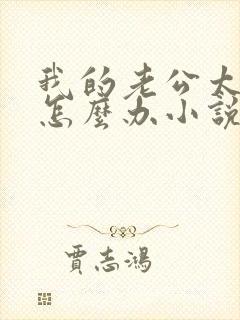 我的老公太
怎麼办小説
賈志鴻